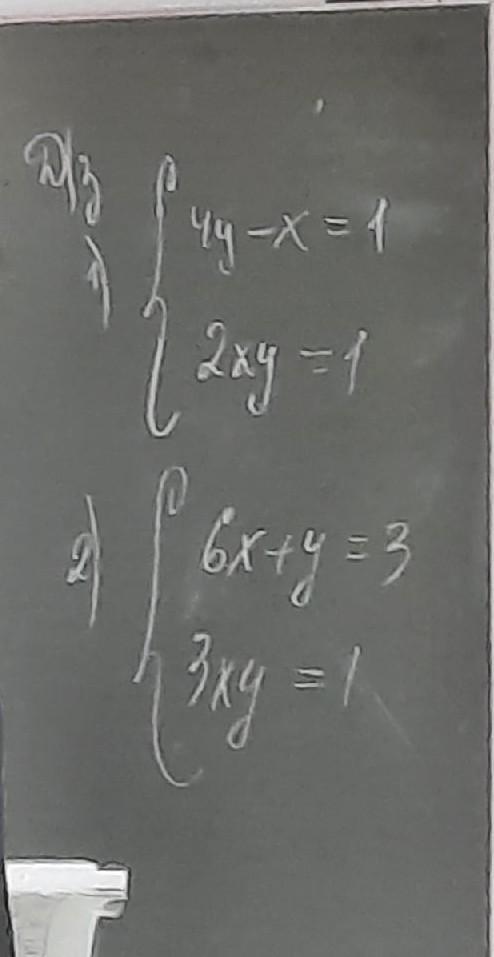 Д/з
1) { 4y - x = 1
2xy = 1
2) { 6x + y = 3
3xy = 1